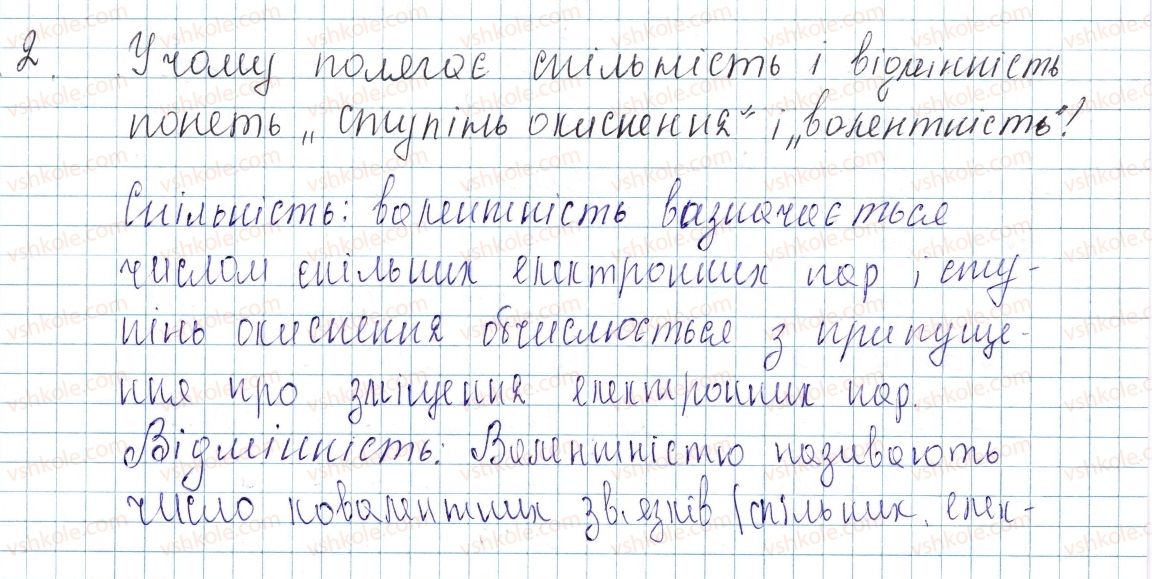 2. У чому полягає спільність і відмінність
понять „ступінь окиснення" і „валентність"?
Спільність: валентність визначається
числом спільних електронних пар, і сту-
пінь окиснення обчислюється з припуще-
ння про зміщення електронних пар.
Відмінність: Валентністю називають
число ковалентних зв'язків (спільних елек-